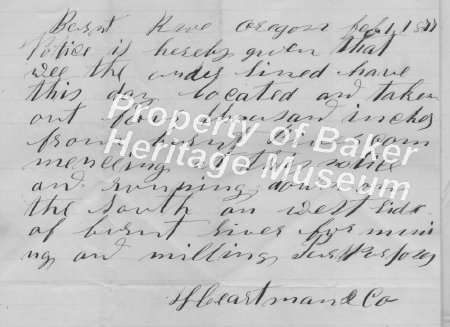 Burnt River oregon feb 1, 1877
Notice is hereby given that
wee the under sined have
this day located and taken
out thousand inches
from burnt com
mencing at this notice
and running down on
the South an west side
of burnt river for mini
ng and milling Purposes
Property of Baker
Heritage Museum
& Co